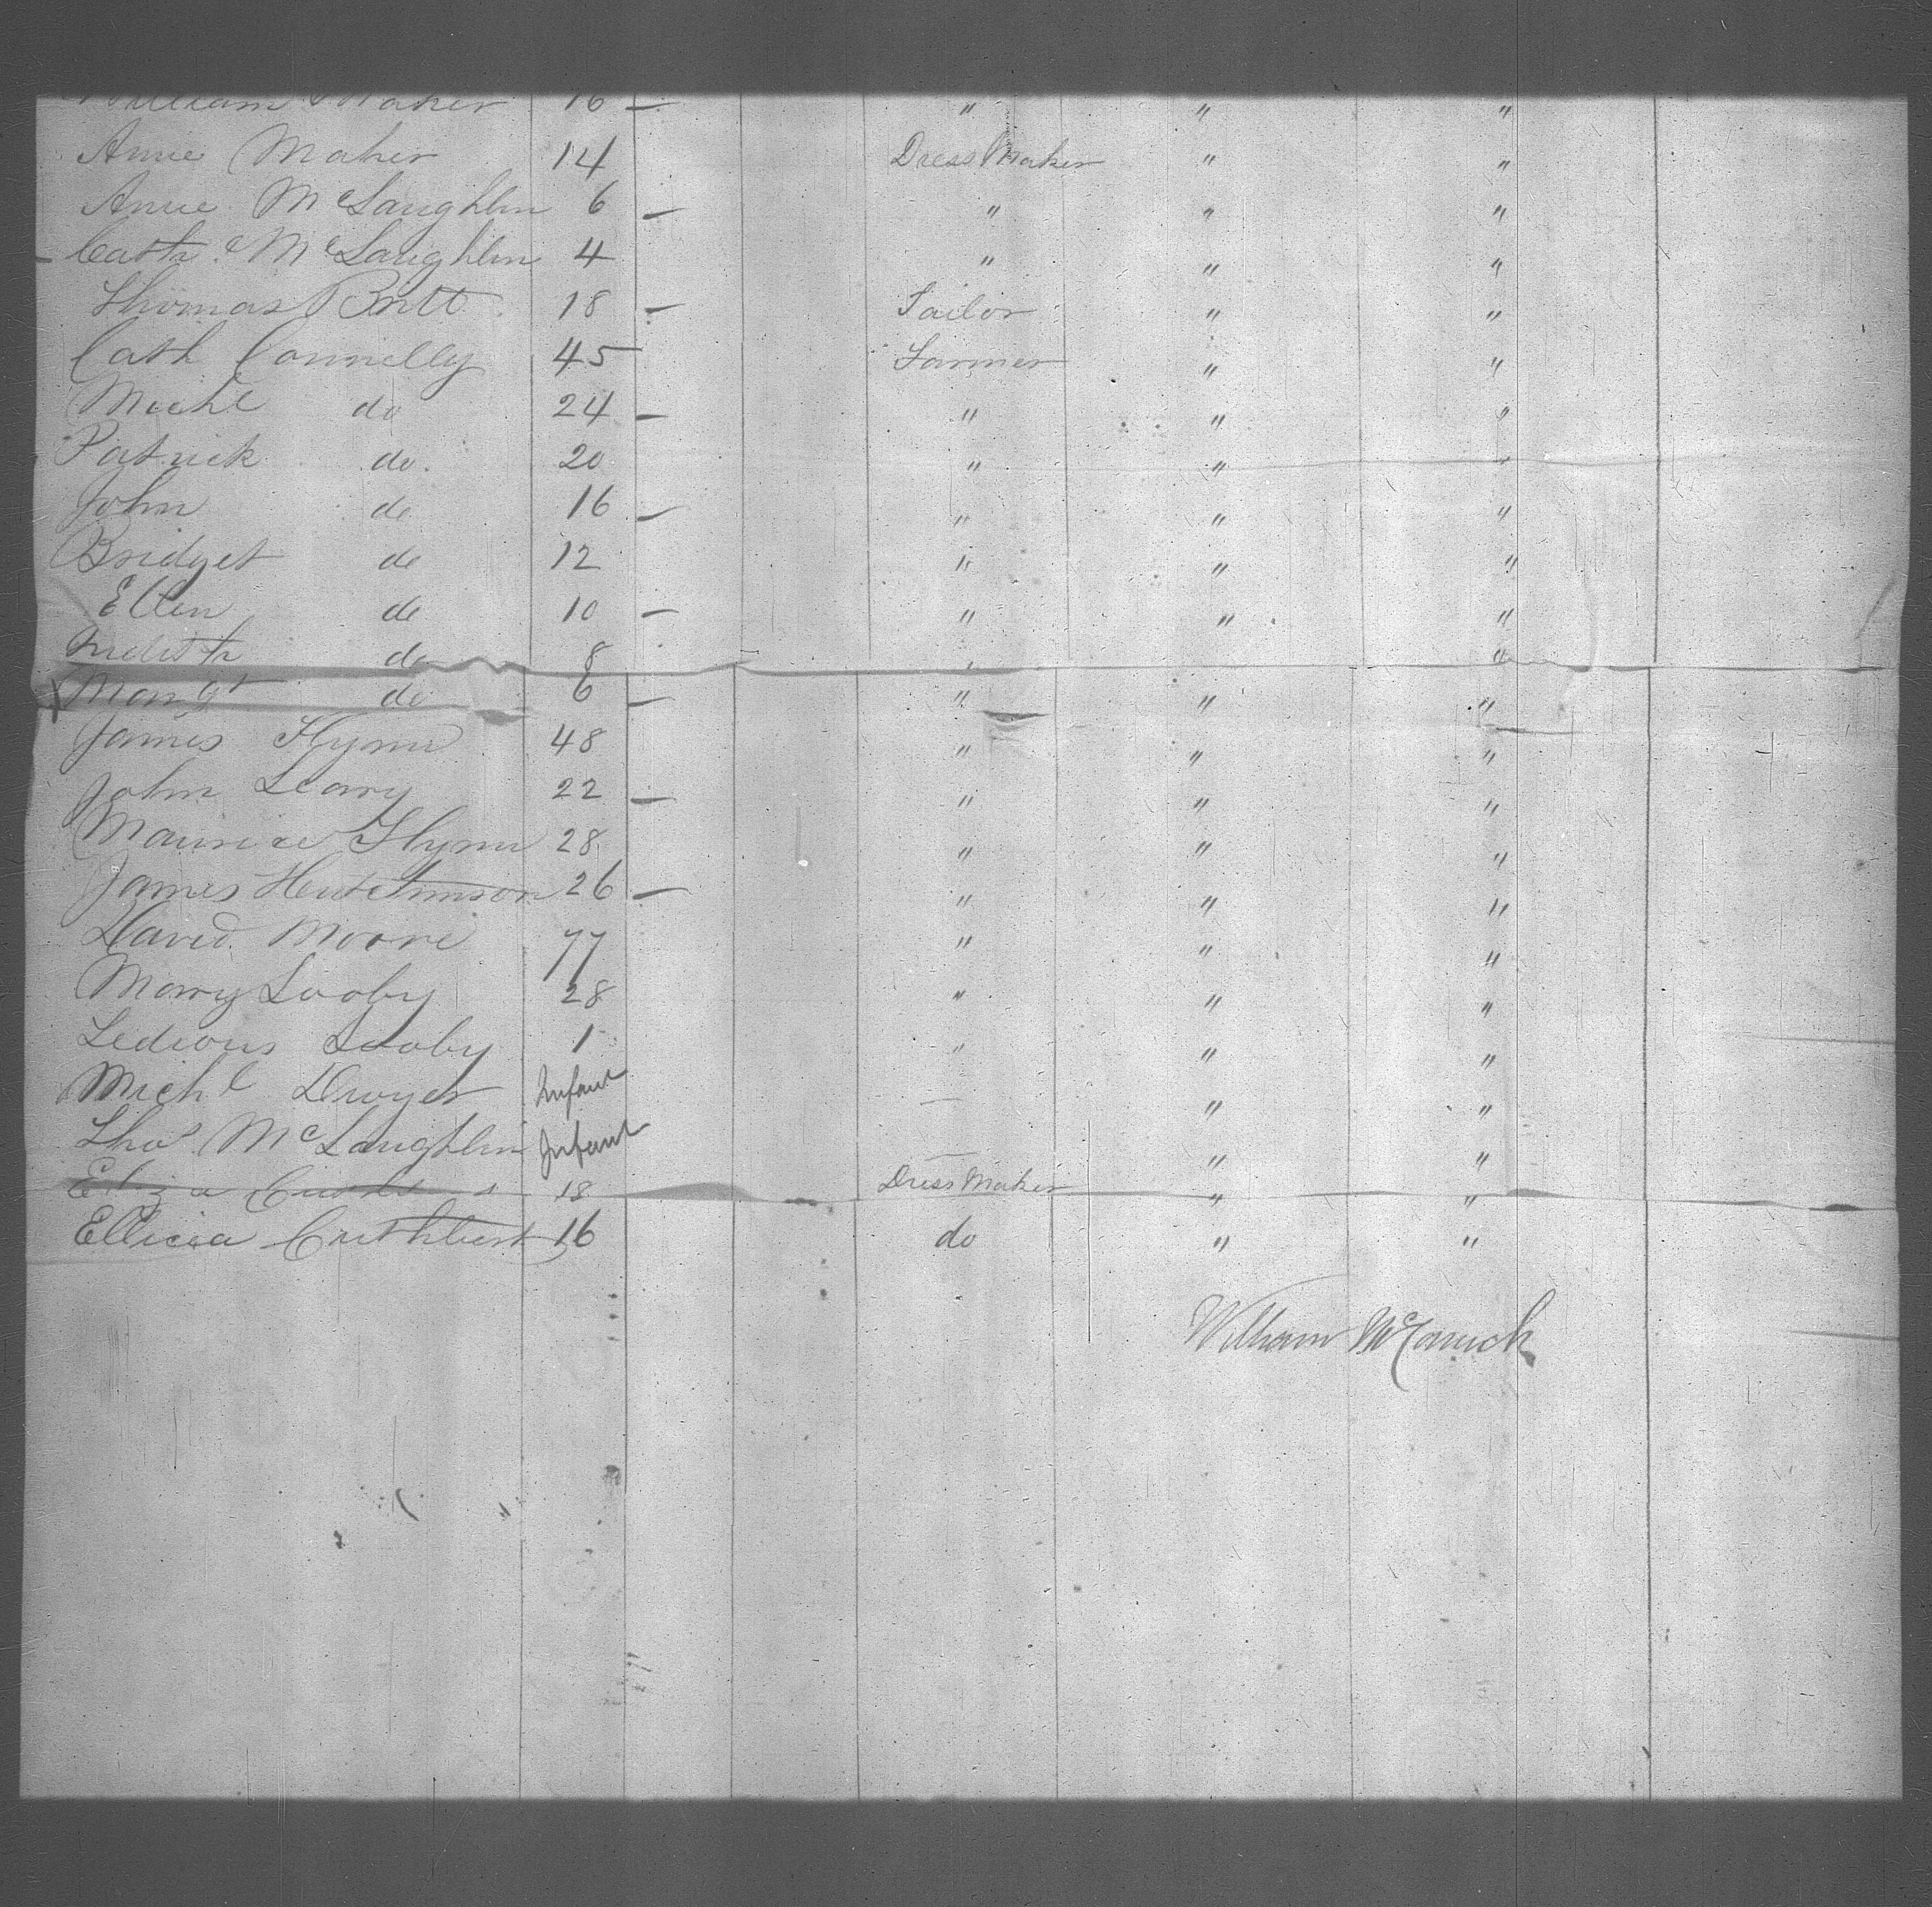 William Maher 16 — " " "
Annie Maher 14 Dress Maker " "
Annie McLaughlin 6 — " " "
Cath McLaughlin 4 " " "
Thomas Britt 18 — Tailor " "
Cath Connelly 45 Farmer " "
Michl do 24 — " " "
Patrick do. 20 " " "
John do 16 — " " "
Bridget do 12 " " "
Ellen do 10 — " " "
do 8 " "
Margt do 6 — " " "
James Flynn 48 " " "
John Leary 22 — " " "
Maurice Flynn 28 " " "
James Hutchinson 26 — " " "
David Moore 77 " " "
Mary Looby 28 " " "
Looby 1 " " "
Michl Dwyer Infant — " "
Thos McLaughlin Infant — " "
Eliza 18 Dress Maker " "
Ellicia Cuthbert 16 do " "
William